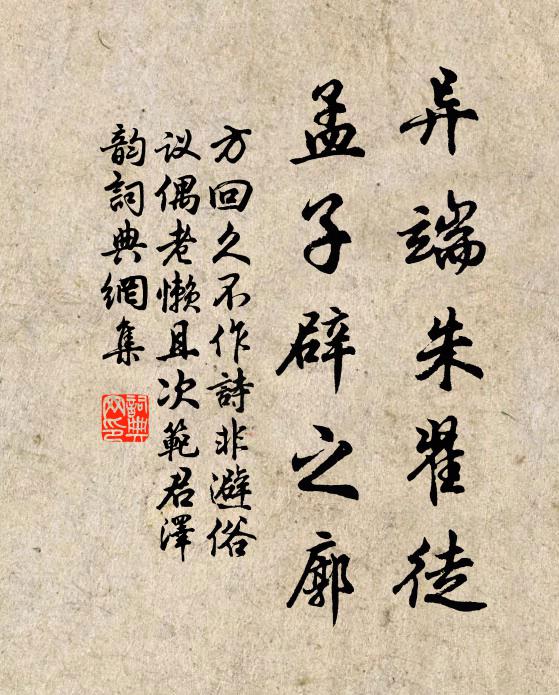 异端朱翟徒
孟子辟之廓
方回久不作詩非避俗
议偶老懒且次範君澤
韵詞典網集
詞典
网印